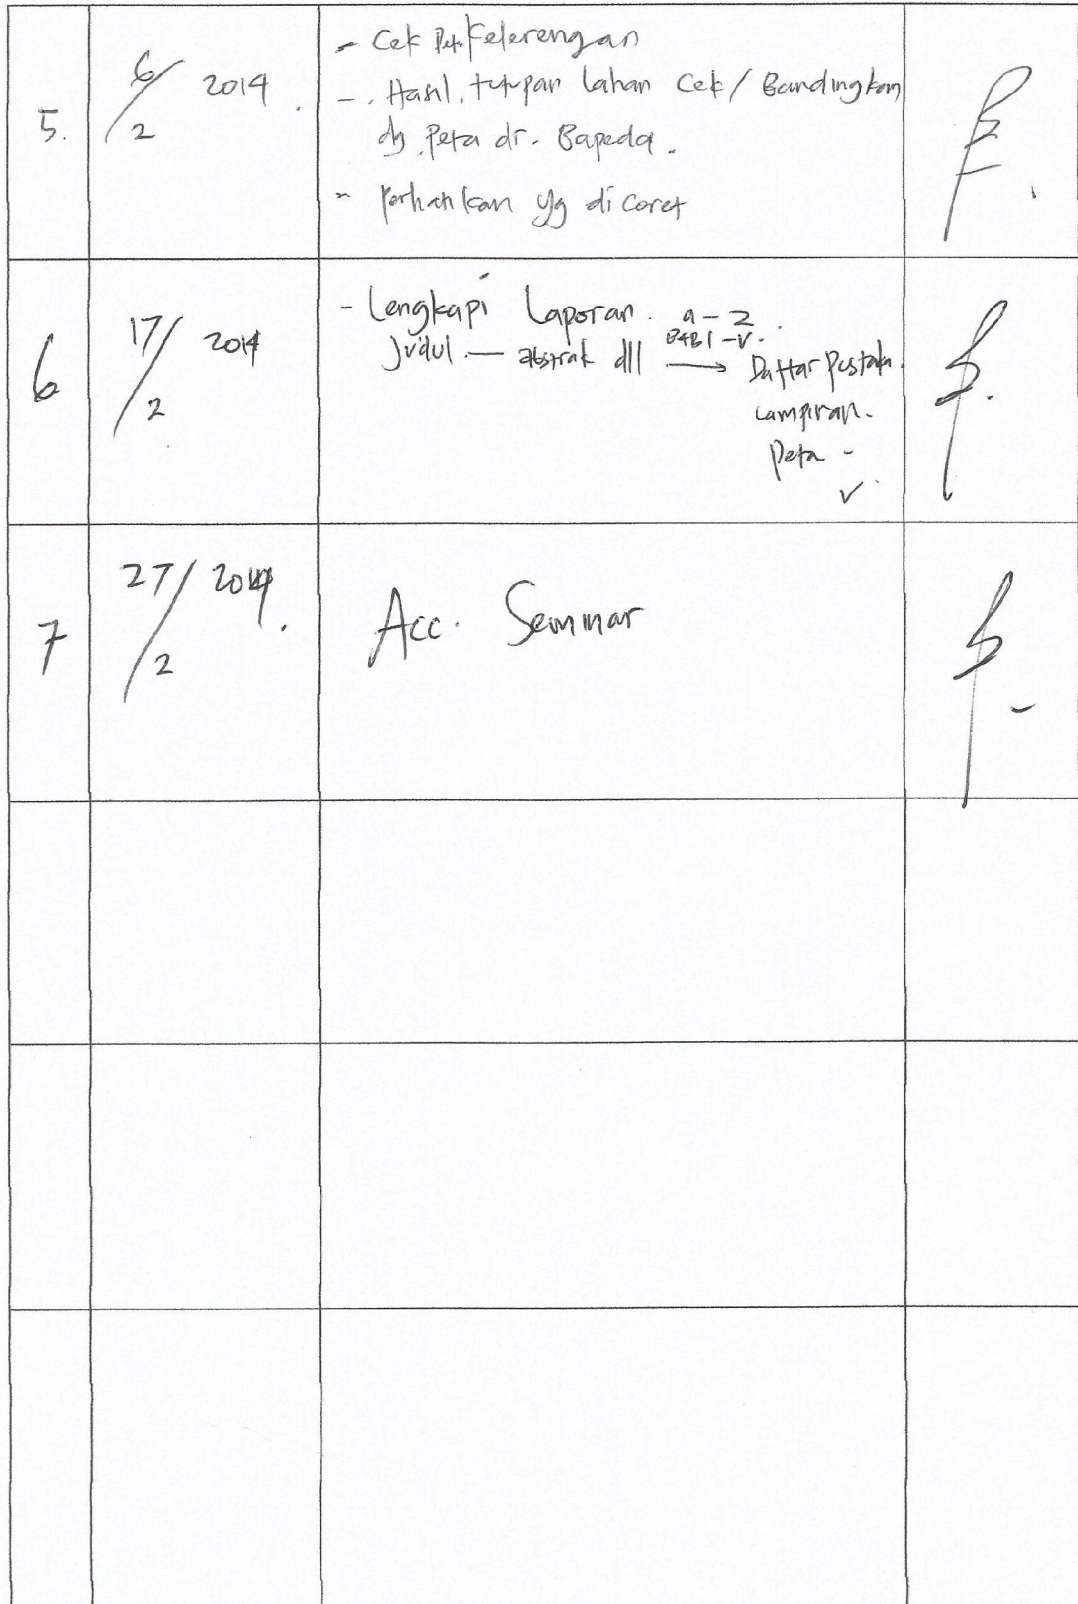 5.
6/2 2014.
- Cek Pet. Kelerengan
- Hasil tutupan lahan Cek / Bandingkan
dg Peta dr. Bapeda.
- Perhatikan yg di coret
6
17/2 2014
- Lengkapi Laporan. a - z.
BAB I - V.
Judul — abstrak dll → Daftar Pustaka.
Lampiran.
Peta -
7
27/2 2014.
Acc. Seminar